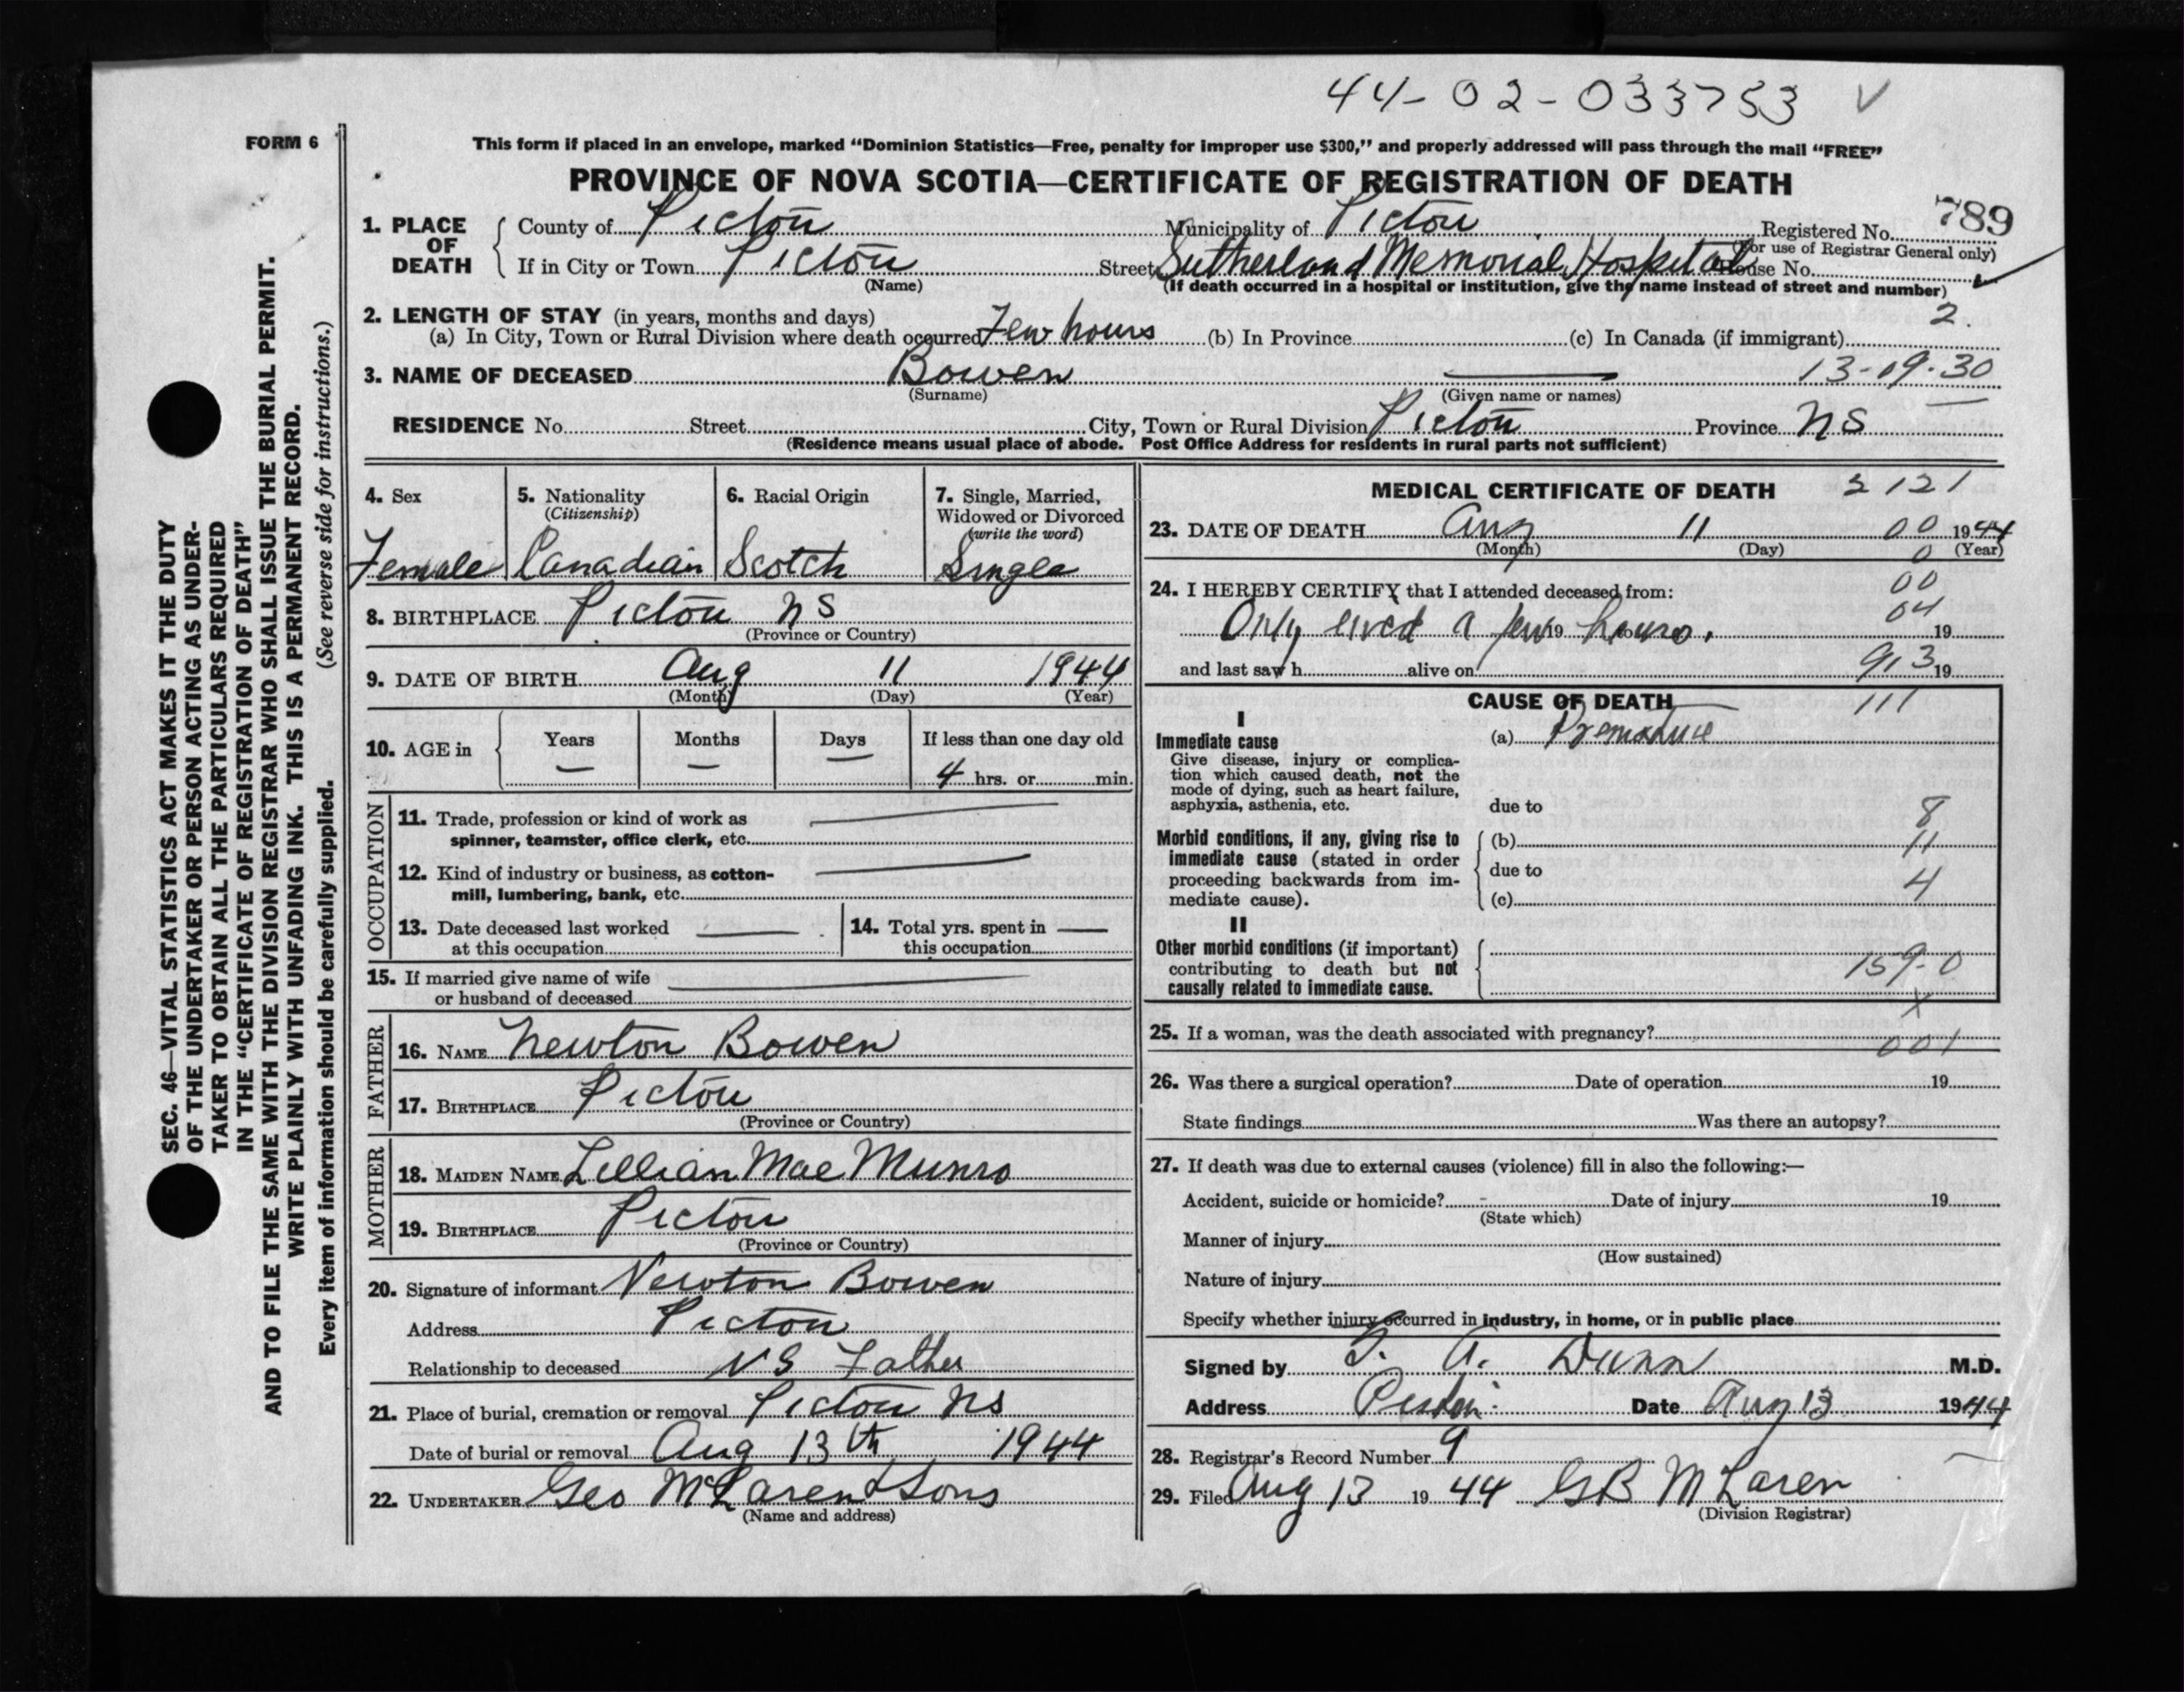 44-02-033753 V
FORM 6
This form if placed in an envelope, marked "Dominion Statistics—Free, penalty for improper use $300," and properly addressed will pass through the mail "FREE"
PROVINCE OF NOVA SCOTIA—CERTIFICATE OF REGISTRATION OF DEATH
789
1. PLACE OF DEATH
County of Pictou Municipality of Pictou Registered No.
(For use of Registrar General only)
If in City or Town Pictou Street Sutherland Memorial Hospital House No.
(Name) (If death occurred in a hospital or institution, give the name instead of street and number)
2. LENGTH OF STAY (in years, months and days) 2.
(a) In City, Town or Rural Division where death occurred Few hours (b) In Province (c) In Canada (if immigrant)
3. NAME OF DECEASED Bowen — 13-09-30
(Surname) (Given name or names)
RESIDENCE No. Street City, Town or Rural Division Pictou Province NS
(Residence means usual place of abode. Post Office Address for residents in rural parts not sufficient)
4. Sex 5. Nationality (Citizenship) 6. Racial Origin 7. Single, Married, Widowed or Divorced (write the word)
Female Canadian Scotch Single
8. BIRTHPLACE Pictou NS
(Province or Country)
9. DATE OF BIRTH Aug 11 1944
(Month) (Day) (Year)
10. AGE in Years Months Days If less than one day old
— — — 4 hrs. or min.
OCCUPATION
11. Trade, profession or kind of work as
spinner, teamster, office clerk, etc.
12. Kind of industry or business, as cotton-
mill, lumbering, bank, etc.
13. Date deceased last worked at this occupation 14. Total yrs. spent in this occupation
15. If married give name of wife
or husband of deceased
FATHER
16. NAME Newton Bowen
17. BIRTHPLACE Pictou
(Province or Country)
MOTHER
18. MAIDEN NAME Lillian Mae Munro
19. BIRTHPLACE Pictou
(Province or Country)
20. Signature of informant Newton Bowen
Address Pictou
Relationship to deceased NS Father
21. Place of burial, cremation or removal Pictou NS
Date of burial or removal Aug 13th 1944
22. UNDERTAKER Geo McLaren & Sons
(Name and address)
MEDICAL CERTIFICATE OF DEATH 2121
23. DATE OF DEATH Aug 11 00 1944
(Month) (Day) 0 (Year)
00
24. I HEREBY CERTIFY that I attended deceased from:
04
Only lived a few 19 hours. 19
and last saw h alive on 913 19
CAUSE OF DEATH 111
I
Immediate cause (a) Premature
Give disease, injury or complica-
tion which caused death, not the
mode of dying, such as heart failure,
asphyxia, asthenia, etc. due to 8
Morbid conditions, if any, giving rise to (b) 11
immediate cause (stated in order
proceeding backwards from im- due to 4
mediate cause). (c)
II
Other morbid conditions (if important)
contributing to death but not 159-0
causally related to immediate cause.
X
25. If a woman, was the death associated with pregnancy?
001
26. Was there a surgical operation? Date of operation 19
State findings Was there an autopsy?
27. If death was due to external causes (violence) fill in also the following:—
Accident, suicide or homicide? - Date of injury 19
(State which)
Manner of injury
(How sustained)
Nature of injury
Specify whether injury occurred in industry, in home, or in public place
Signed by A. Dunn M.D.
Address Date Aug 13 1944
28. Registrar's Record Number 9
29. Filed Aug 13 19 44 GB McLaren
(Division Registrar)
SEC. 46—VITAL STATISTICS ACT MAKES IT THE DUTY
OF THE UNDERTAKER OR PERSON ACTING AS UNDER-
TAKER TO OBTAIN ALL THE PARTICULARS REQUIRED
IN THE "CERTIFICATE OF REGISTRATION OF DEATH"
AND TO FILE THE SAME WITH THE DIVISION REGISTRAR WHO SHALL ISSUE THE BURIAL PERMIT.
WRITE PLAINLY WITH UNFADING INK. THIS IS A PERMANENT RECORD.
Every item of information should be carefully supplied. (See reverse side for instructions.)